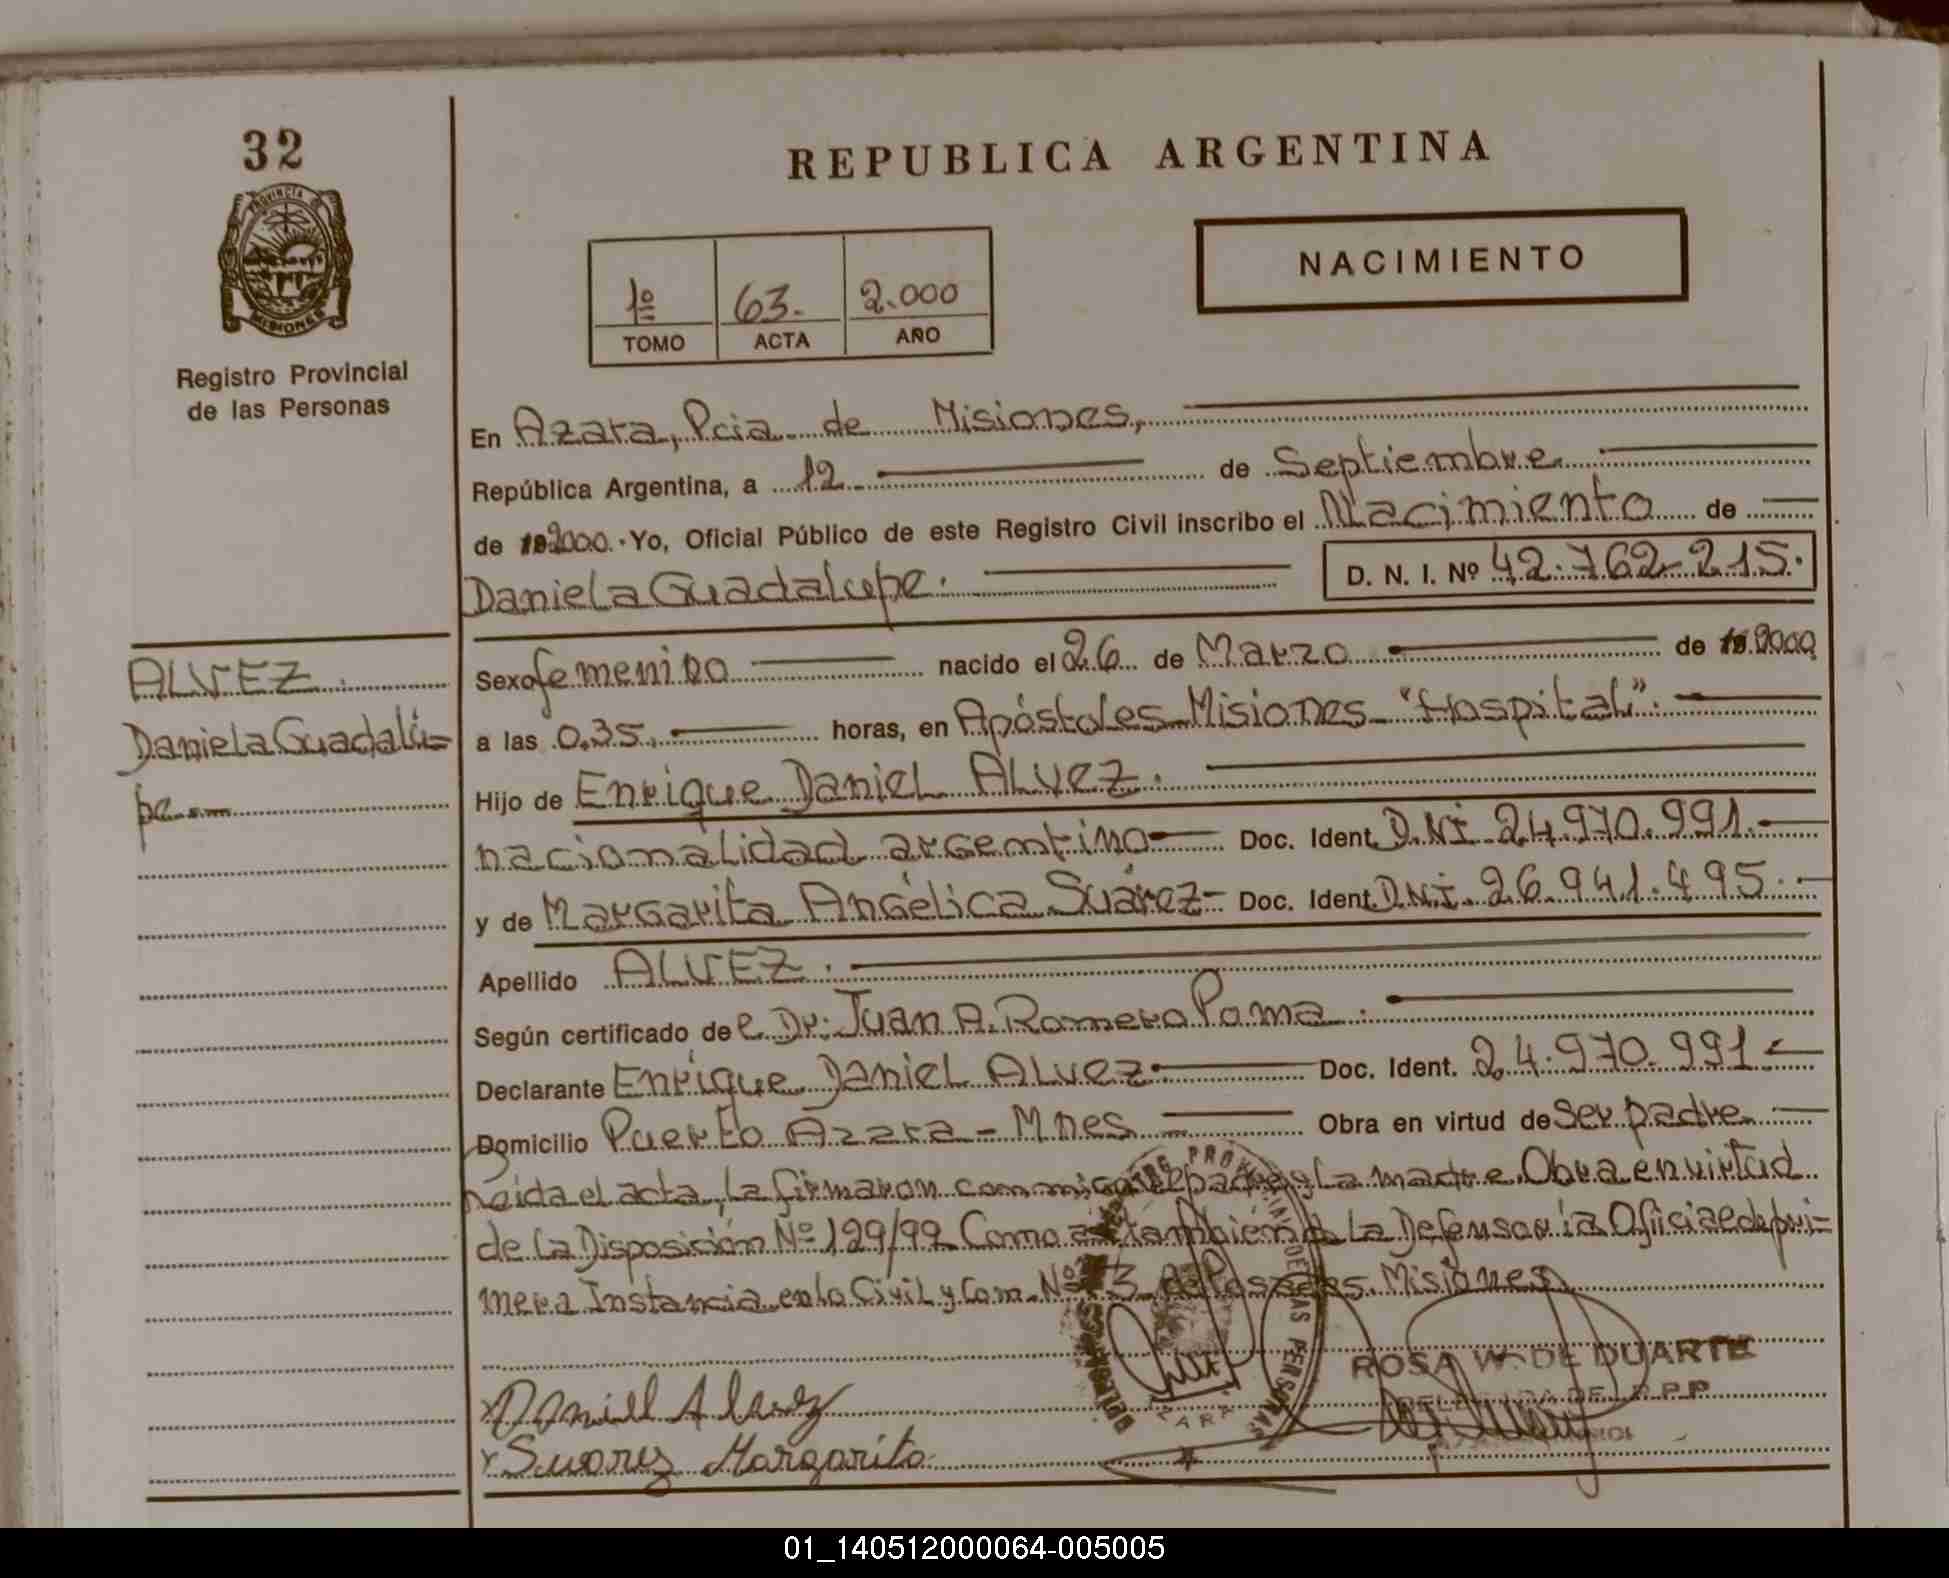 32
PROVINCIA DE
MISIONES
Registro Provincial
de las Personas
REPUBLICA ARGENTINA
1º 63. 2.000
TOMO ACTA AÑO
NACIMIENTO
En Azara, Pcia. de Misiones,
República Argentina, a 12 de Septiembre
de 192000. Yo, Oficial Público de este Registro Civil inscribo el Nacimiento de
Daniela Guadalupe. D. N. I. Nº 42.762.215.
ALVEZ.
Daniela Guadalu=
pe.
Sexo femenino nacido el 26 de Marzo de 192000
a las 0,35. horas, en Apóstoles Misiones "Hospital".
Hijo de Enrique Daniel ALVEZ.
nacionalidad argentino Doc. Ident. D.N.I. 24.970.991.
y de Margarita Angélica Suárez- Doc. Ident. D.N.I. 26.941.495.
Apellido ALVEZ.
Según certificado del Dr. Juan A. Romero Poma.
Declarante Enrique Daniel ALVEZ Doc. Ident. 24.970.991
Domicilio Puerto Azara - Mnes Obra en virtud de ser padre
Leida el acta, la firmaron conmigo el padre y la madre. Obra en virtud
de la Disposición Nº 129/99 Como así también de la Defensoría Oficial de pri=
mera Instancia en lo Civil y Com. Nº 3 de Posadas Misiones
Daniel Alvez
Suarez Margarita
AZARA
ROSA W. DE DUARTE
DELEGADA DEL R.P.P
01_140512000064-005005